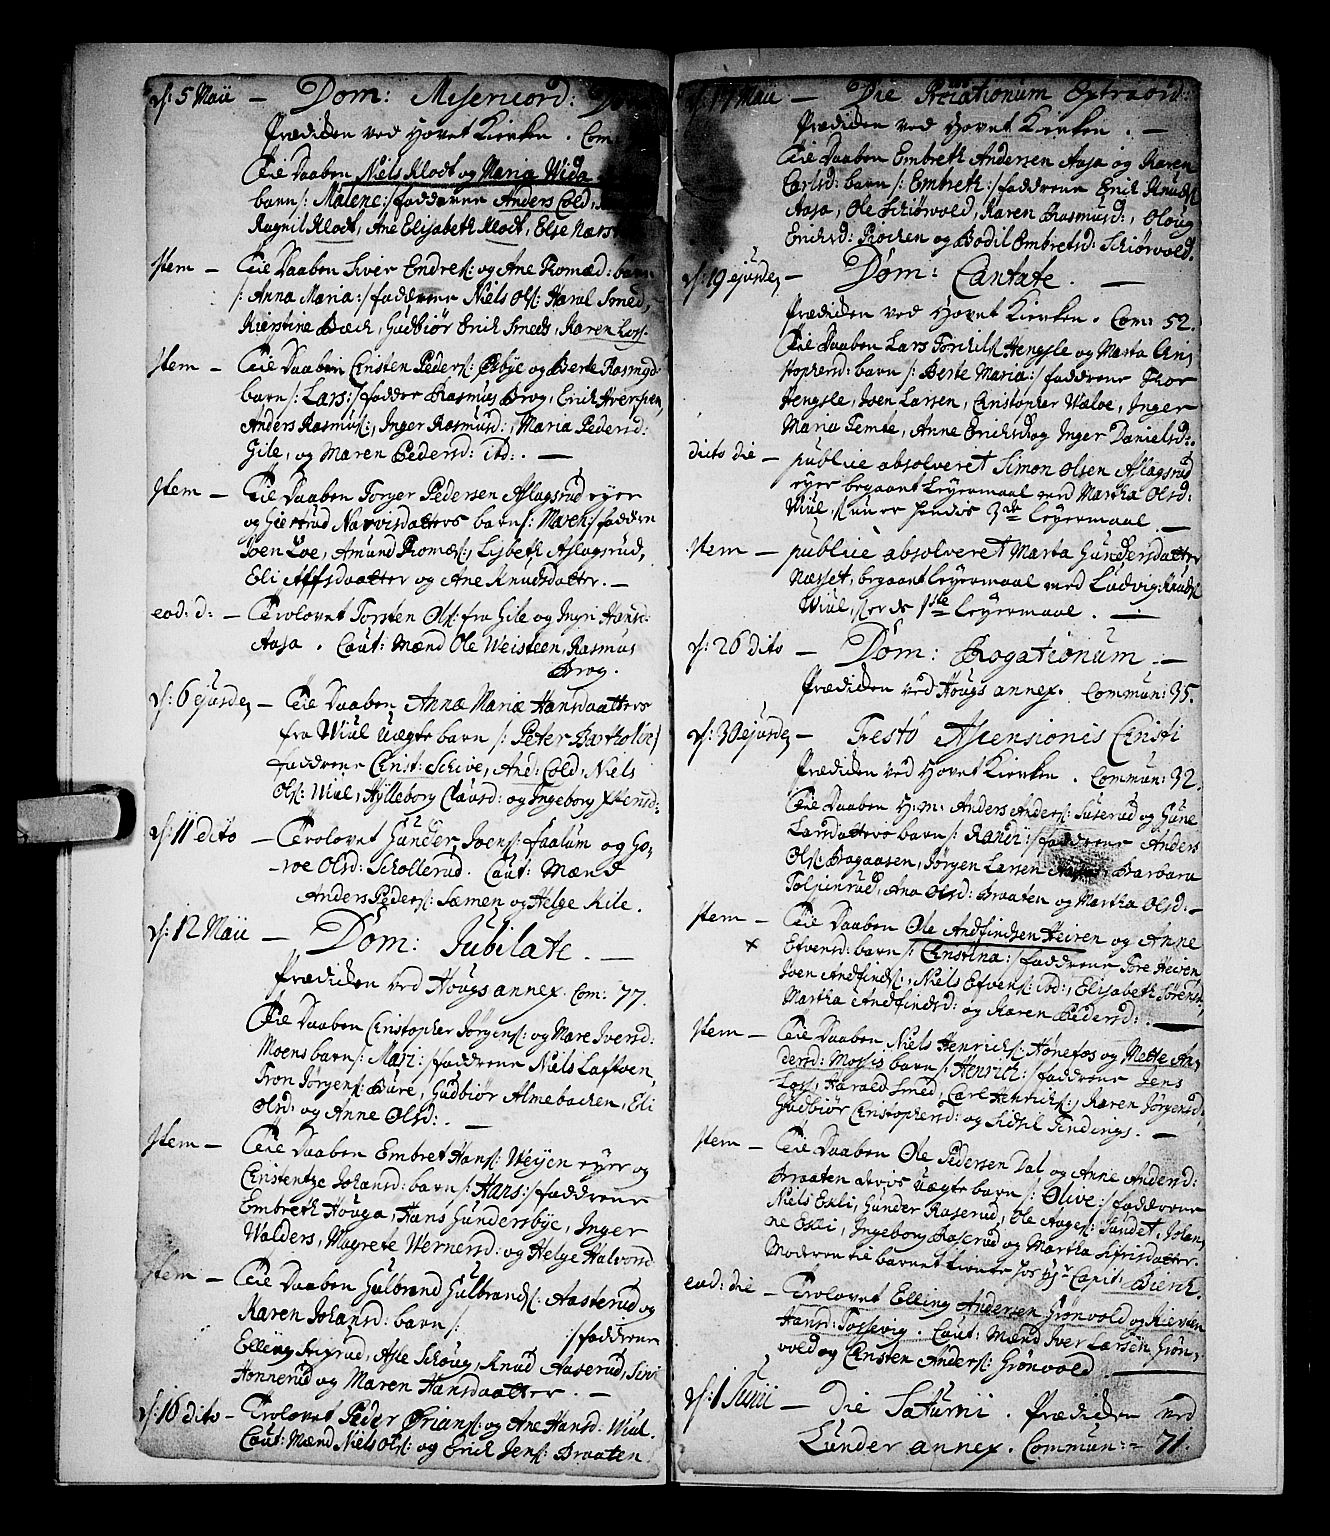 d: 5 Maii — Dom: Misericord:
Prædiken ved Hovet Kirken. Com:
Til Daaben Niels Klodt og Maria Wida
barn /: Malene :/ faddrene Anders Cold,
Ragnil Klodt, Ane Elisabeth Klodt, Else
Item — Til Daaben Siver Endres: og Ane Tomæd: barn
/: Anna Maria :/ faddrene Niels Ols: Haral Smed,
Kierstine Beck, Gudbiør Erich Smeds, Karen Loss.
Item — Til Daaben Cristen Peders: Øsbye og Berte Rasmusd:
barn /: Lars :/ fadder Rasmus Brog, Erich Iversen,
Anders Rasmus:, Inger Rasmusd:, Maria Pedersd:
Gile, og Maren Pedersd: itd: . —
Item — Til Daaben Torger Pedersen Aslagsrud eyer
og Giertrud Narvisdatters barn /: Maren :/ faddrene
Joen Loe, Amund Tomæs:, Lisbeth Aslagsrud,
Eli Alfsdaatter og Ane Knudsdatter. —
eod: d: — Trolovet Torsten Ols: fra Gile og Ingri Hansd:
Aasa . Caut: Mænd Ole Weisteen, Rasmus
Brog.
d: 6 ejusdem — Til Daaben Annæ Mariæ Hansdaatters
fra Wiul uægte barn /: Peter Bartholou/
faddrene Crist: Schive, And: Cold, Niels
Ols: Wiul, Hylleborg Clausd: og Ingeborg Iversd:
d: 11 dito — Trolovet Gunder Joens: faalum og Go-
roe Olsd: Schollerud. Caut: Mænd
Anders Peders: Sæmen og Helge Kile.
d: 12 Maii — Dom: Jubilate. —
Prædiken ved Hougs annex. Com: 77.
Til Daaben Cristopher Jørgens: og Mare Iversd:
Moens barn /: Mari :/ faddrene Niels Laftven,
Tron Jørgens: Bure, Gudbiør Almebacken, Eli
Olsd: og Anne Olsd: . —
Item — Til Daaben Embret Hans: Weyen eyer og
Cristentze Johansd: barn /: Hans :/ faddrene
Embreth Houga, Hans Gundersbye, Inger
Walders, Magrete Wernersd: og Helge Halvorsd
Item — Til Daaben Gulbrand Gulbrands: Aasterud og
Karen Johansd: barn /: :/ faddrene
Elling Frigrud, Asle Schoug, Knud Aaserud, Siri
Honnerud og Maren Hansdaatter. —
d: 16 dito — Trolovet Peder Brians: og Ane Hansd: Wiul.
Caut: Mænd Niels Ols: og Erich Jens: Braaten
d: 17 Maii — Die Rogationum Extraord:
Prædiken ved Hovet Kirken. —
Til Daaben Embreth Andersen Aasa og Karen
Carlsd: barn /: Embreth :/ faddrene Erich Knuds:
Aasa, Ole Schiørvold, Karen Rasmusd:, Oloug
Erichsd: Rocken og Bodil Embretsd: Schiørvold.
d: 19 ejusdem — Dom: Cantate. —
Prædiken ved Hovet Kirken. Com: 52.
Til Daaben Lars Torkils: Hengsle og Marta Cri-
stophersd: barn /: Berte Maria :/ faddrene Thor
Hengsle, Joen Larsen, Cristopher Wæloe, Inger
Maria Temte, Anne Erichsd og Inger Danielsd: .
dicto die — publice absolveret Simon Olsen Aslagsrud
eyer begaaet Leyermaal med Martha Olsd:
Wiul, sær hendis 3de Leyermaal. —
Item — publice absolveret Marta Gundersdaatter
Næsset, begaaet Leyermaal med Ludvig Knuds:
Wiul, er de 1ste Leyermaal. —
d: 26 dito — Dom: Rogationum. —
Prædiken ved Hougs annex. Commun: 35.
d: 30 ejusdem — Festo Ascensionis Cristi
Prædiken ved Hovet Kirken. Commun: 32.
Til Daaben H:m: Anders Anders: Suserud og Gune
Larsdatters barn /: Kari :/ faddrene Anders
Ols: Bagaasen, Jørgen Larsen, Barbara
Tolpinrud, Ana Olsd: Braaten og Martha Olsd: —
Item — Til Daaben Ole Andfindsen Heiren og Anne
x Efvensd: barn /: Cristina :/ faddrene Tore Heiren,
Joen Andfinds:, Niels Efvens: ibd:, Elisabeth Sørensd:,
Martha Andfindsd: og Karen Pedersd: . —
Item — Til Daaben Niels Henrichs: Hønefos og Mette An-
dersd: Mossis barn /: Henrich :/ faddrene Jens
Loss, Harald Smed, Carl Henrichs:, Karen Jørgensd:,
Gudbiør Cristophersd: og Sidsil Findings. —
Item — Til Daaben Ole Pedersen Dal og Anne Andersd:
Braaten deris uægte barn /: Olive :/ faddrene
Niels Ekli, Gunder Raserud, Ole Aages: Sundet, Johan-
ne Ekli, Ingeborg Raserud og Martha Sifrisdatter.
Moderen til barnet tiener hos Hr Capit: Bierck.
eod: die — Trolovet Elling Andersen Grønvold og Kiersten
Hansd: Tossevig. Caut: Mænd Iver Larsen Grøn-
vold og Cristen Anders: Grønvold.
d: 1 Junii — Die Saturni . Prædiken ved
Lunder annex. Commun: 71.